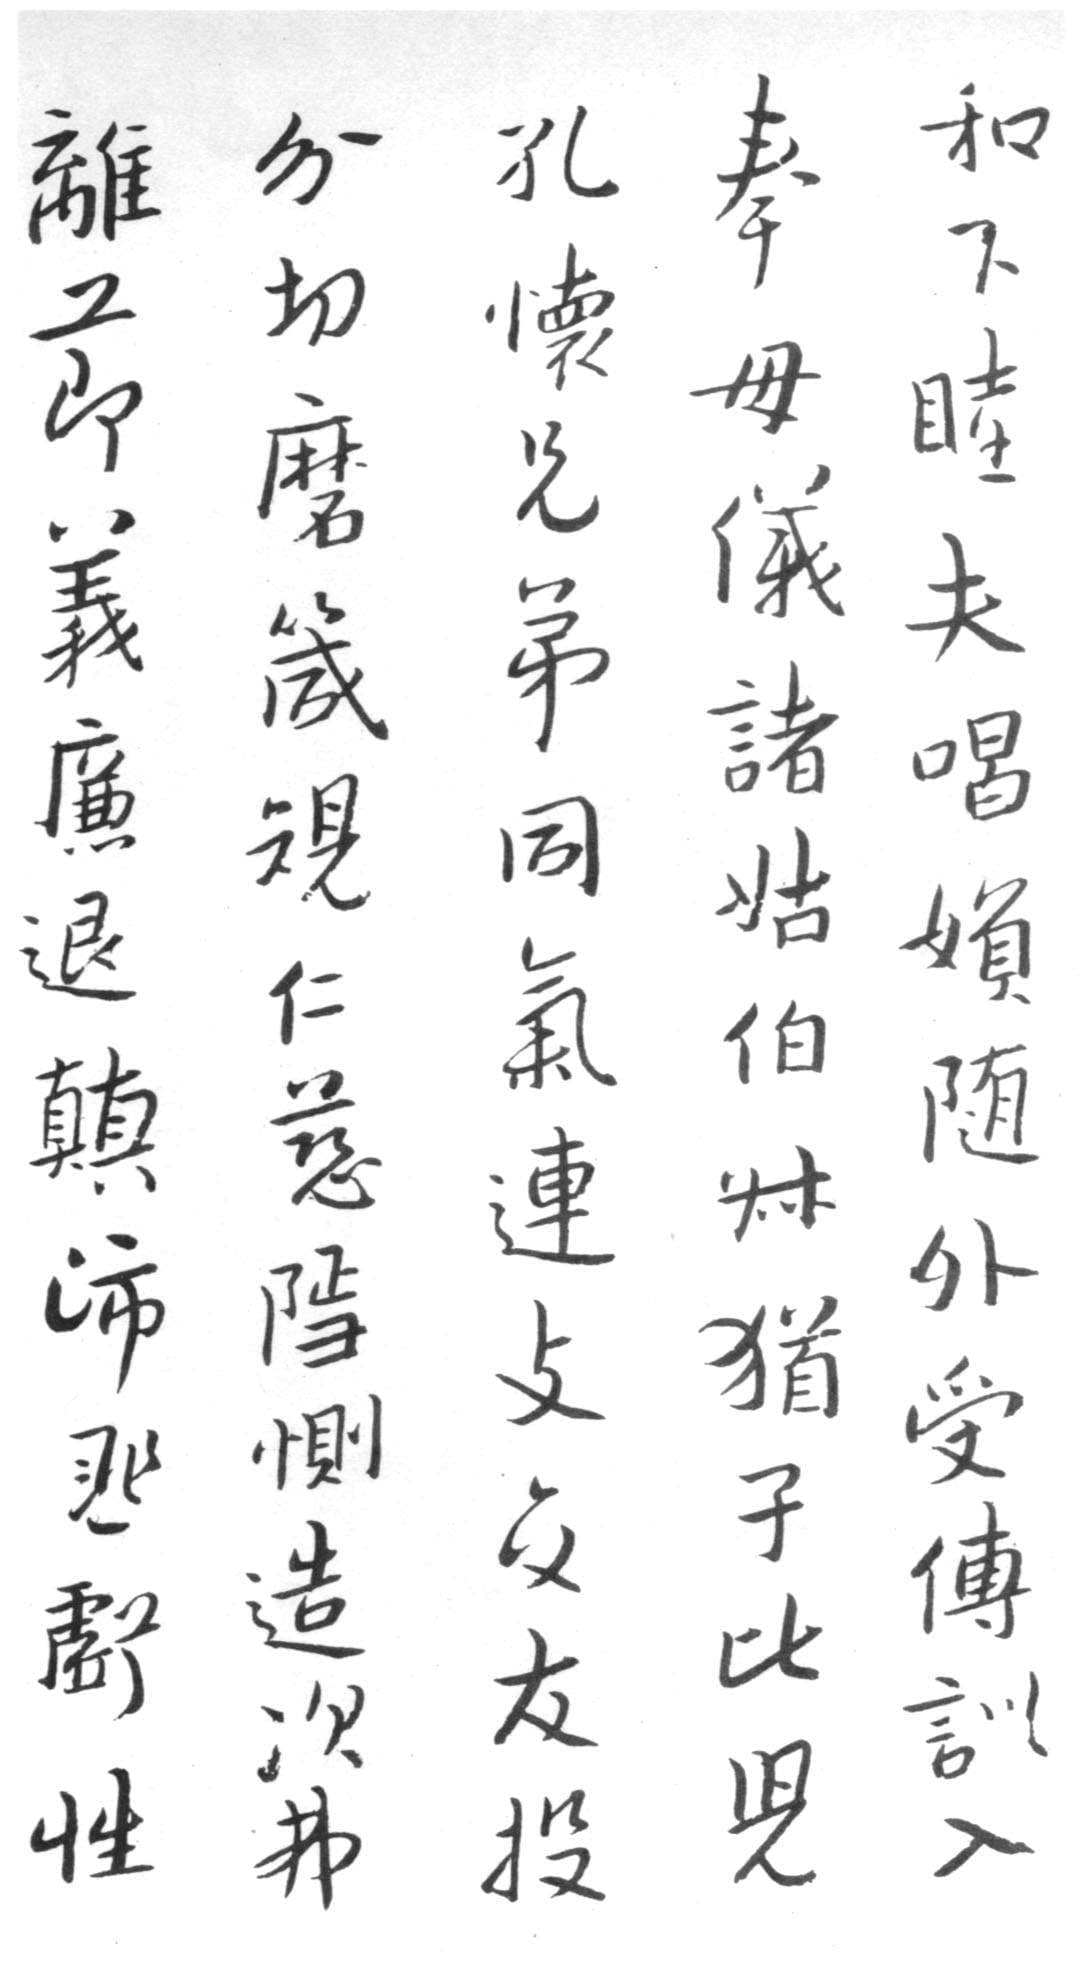 和下睦夫唱婦随外受傅訓入
奉母儀諸姑伯叔猶子比兒
孔懷兄弟同氣連支交友投
分切磨箴規仁慈隱惻造次弗
離工節義廉退顛沛匪虧性